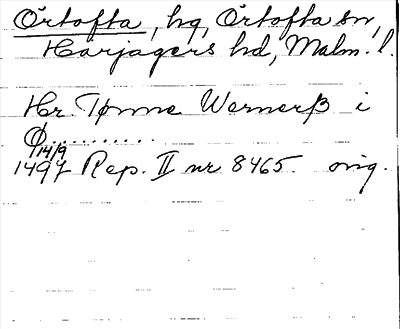 Örtofta, hg, Örtofta sn,
Harjagers hd, Malm. l.
Hr. Tønne Wernerß i
Ø...........
14/9
1497 Rep. II nr 8465. orig.